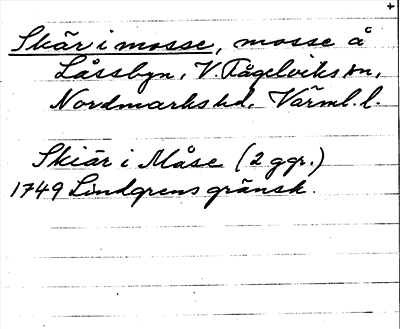 +
Skär i mosse, mosse å
Låssbyn, V. Fågelviks sn,
Nordmarks hd, Värml. l.
Skiär i Måse (2 ggr.)
1749 Lindgrens gränsk.